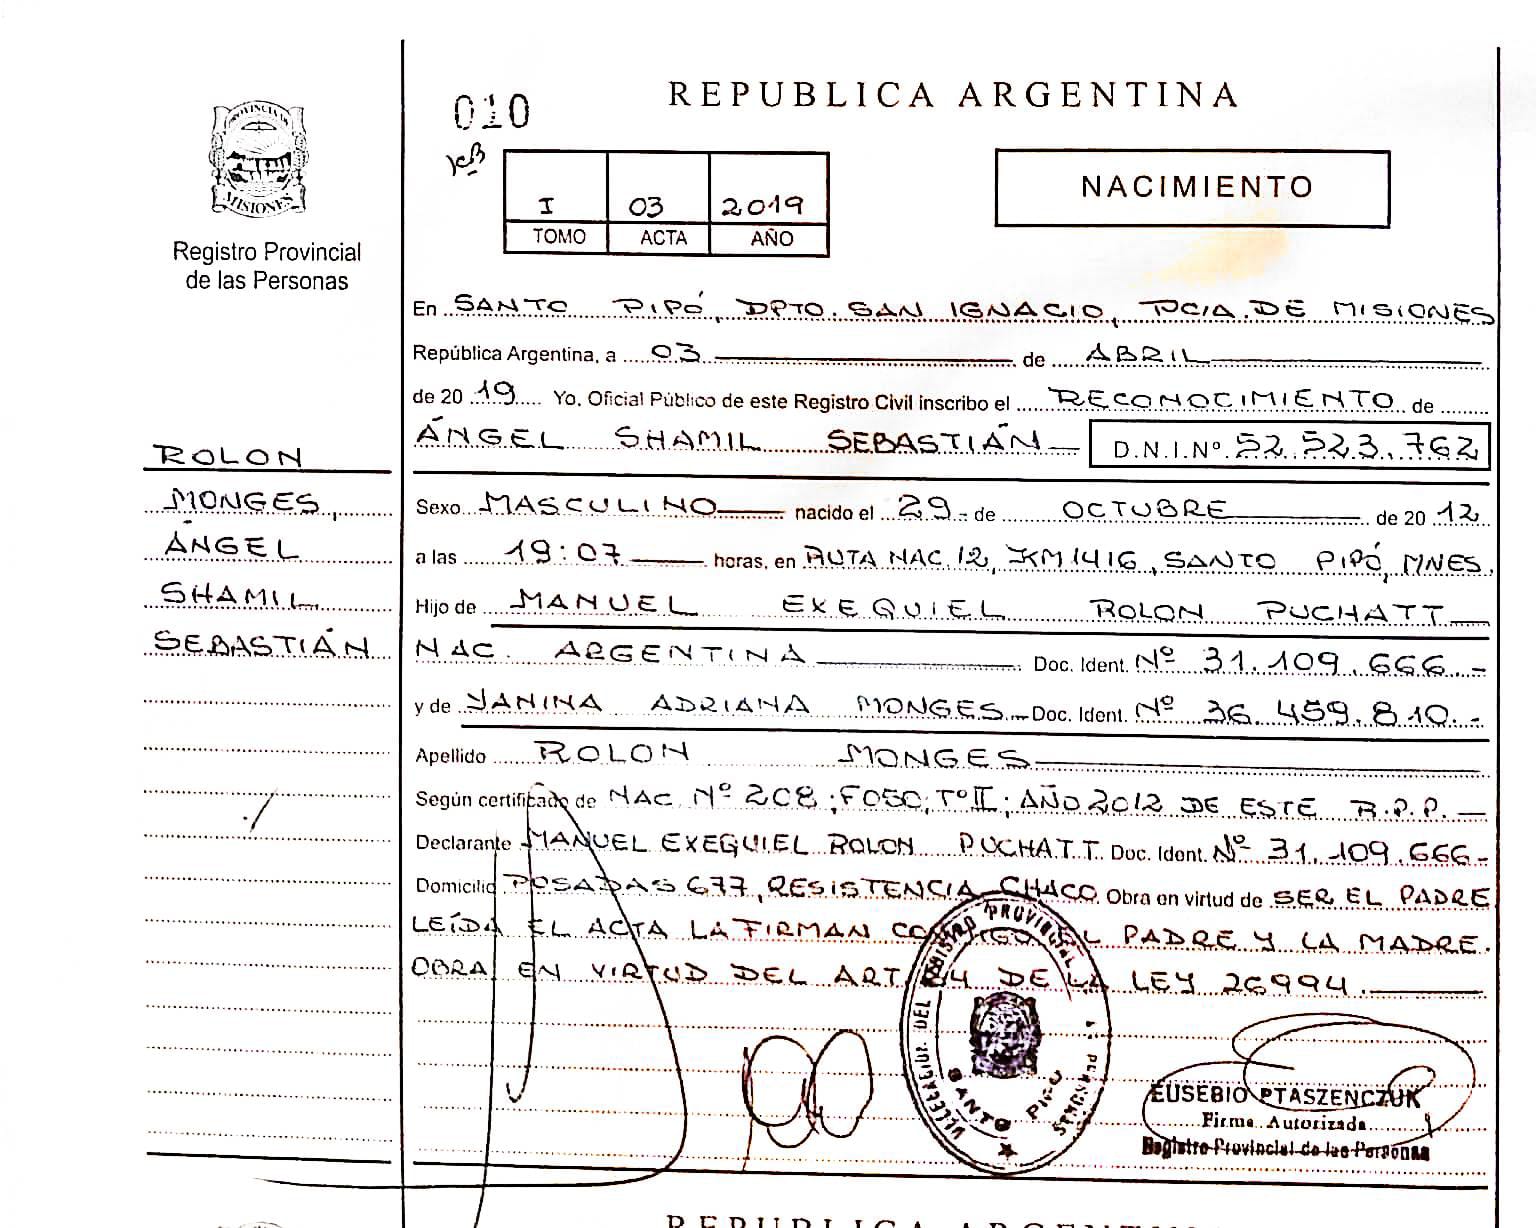 REPUBLICA ARGENTINA
010
PROVINCIA DE
MISIONES
Registro Provincial
de las Personas
I 03 2019
TOMO ACTA AÑO
NACIMIENTO
En SANTO PIPÓ, DPTO. SAN IGNACIO, PCIA. DE MISIONES
República Argentina, a 03 de ABRIL
de 20 19 Yo, Oficial Público de este Registro Civil inscribo el RECONOCIMIENTO de
ÁNGEL SHAMIL SEBASTIÁN D.N.I.Nº 52.523.762
ROLON
MONGES,
ÁNGEL
SHAMIL
SEBASTIÁN
Sexo MASCULINO nacido el 29.- de OCTUBRE de 20 12
a las 19:07 horas, en RUTA NAC. 12, KM 1416, SANTO PIPÓ, MNES.
Hijo de MANUEL EXEQUIEL ROLON PUCHATT
NAC. ARGENTINA Doc. Ident. Nº 31.109.666.-
y de YANINA ADRIANA MONGES Doc. Ident. Nº 36.459.810.-
Apellido ROLON MONGES
Según certificado de NAC. Nº 208; Fº50; TºII; AÑO 2012 DE ESTE R.P.P.
Declarante MANUEL EXEQUIEL ROLON PUCHATT Doc. Ident. Nº 31.109.666-
Domicilio POSADAS 677, RESISTENCIA, CHACO. Obra en virtud de SER EL PADRE
LEÍDA EL ACTA LA FIRMAN CONMIGO EL PADRE Y LA MADRE.
OBRA EN VIRTUD DEL ART. 64 DE LA LEY 26994.
DEL REGISTRO PROVINCIAL
PERSONAS
SANTO PIPÓ
EUSEBIO PTASZENCZUK
Firma Autorizada
Registro Provincial de las Personas
REPUBLICA ARGENTINA